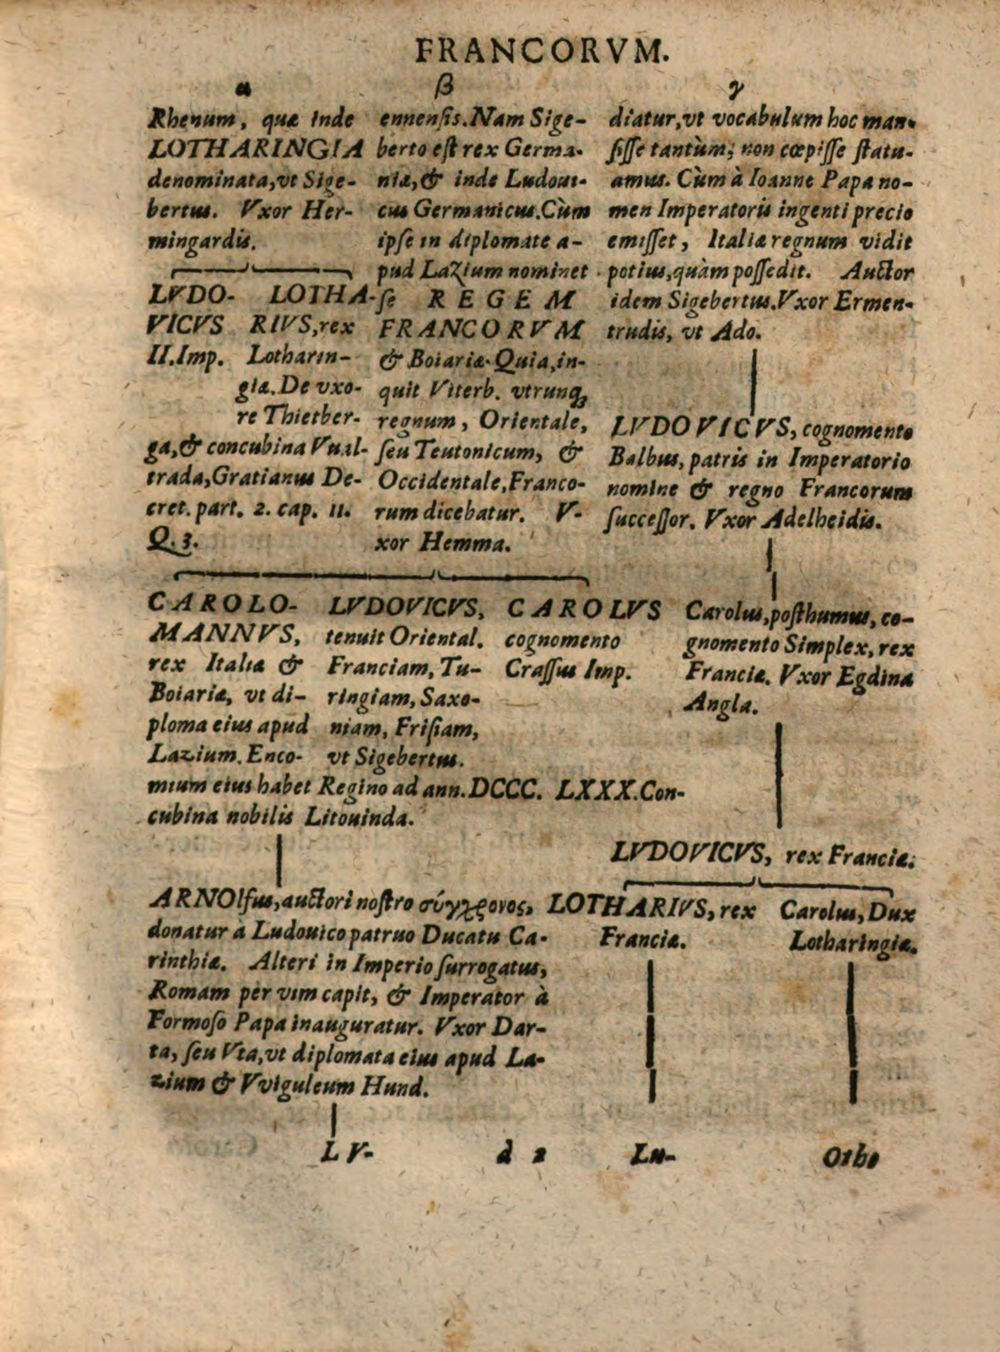 FRANCORVM.
α
Rhenum, quæ inde
LOTHARINGIA
denominata, vt Sige-
bertus. Vxor Her-
mingardis.
LVDO-
VICVS
II. Imp.
LOTHA-
RIVS, rex
Lotharin-
giæ. De vxo-
re Thietber-
ga, & concubina Vual-
trada, Gratianus De-
cret. part. 2. cap. 11.
Q. 3.
β
ennensis. Nam Sige-
berto est rex Germa-
niæ, & inde Ludoui-
cus Germanicus. Cùm
ipse in diplomate a-
pud Lazium nominet
se REGEM
FRANCORVM
& Boiariæ. Quia, in-
quit Viterb. vtrunq;
regnum, Orientale,
seu Teutonicum, &
Occidentale, Franco-
rum dicebatur. V-
xor Hemma.
γ
diatur, vt vocabulum hoc man-
sisse tantùm; non cœpisse statu-
amus. Cùm à Ioanne Papa no-
men Imperatoris ingenti precio
emisset, Italiæ regnum vidit
potius, quàm possedit. Auctor
idem Sigebertus. Vxor Ermen-
trudis, vt Ado.
LVDOVICVS, cognomento
Balbus, patris in Imperatorio
nomine & regno Francorum
successor. Vxor Adelheidis.
CAROLO-
MANNVS,
rex Italiæ &
Boiariæ, vt di-
ploma eius apud
Lazium. Enco-
LVDOVICVS,
tenuit Oriental.
Franciam, Tu-
ringiam, Saxo-
niam, Frisiam,
vt Sigebertus.
mium eius habet Regino ad ann. DCCC. LXXX. Con-
cubina nobilis Litouinda.
CAROLVS
cognomento
Crassus Imp.
Carolus, posthumus, co-
gnomento Simplex, rex
Franciæ. Vxor Egdina
Angla.
LVDOVICVS, rex Franciæ.
ARNOlfus, auctori nostro σύγχρονος,
donatur à Ludouico patruo Ducatu Ca-
rinthiæ. Alteri in Imperio surrogatus,
Romam per vim capit, & Imperator à
Formoso Papa inauguratur. Vxor Dar-
ta, seu Vta, vt diplomata eius apud La-
zium & Vviguleum Hund.
LOTHARIVS, rex
Franciæ.
Carolus, Dux
Lotharingiæ.
LV-
d 2
Lu-
Otho